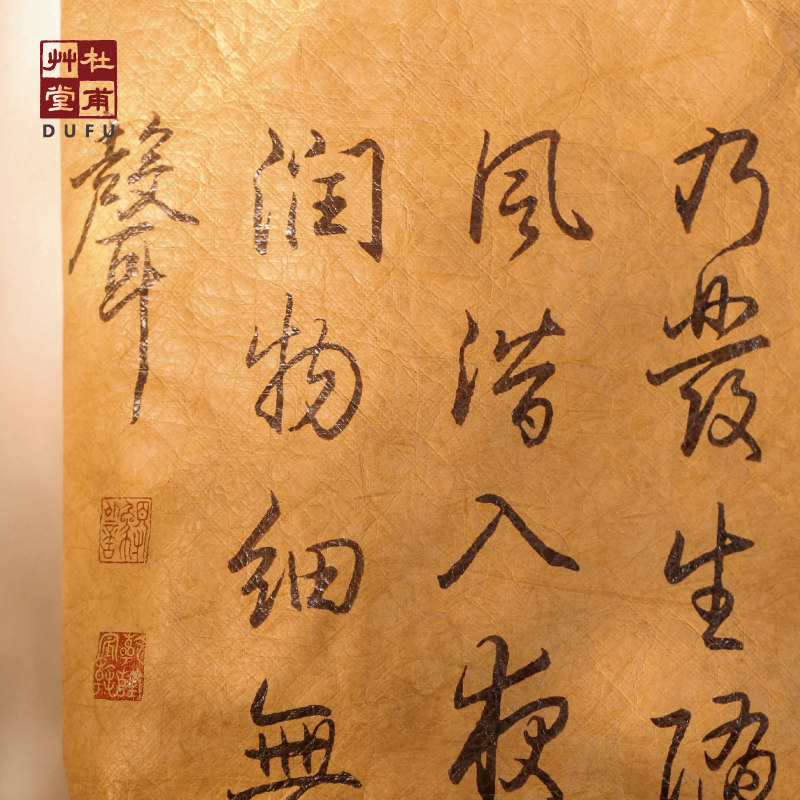 杜甫
艸堂
DUFU
乃發生隨
風潛入夜
潤物細無
聲